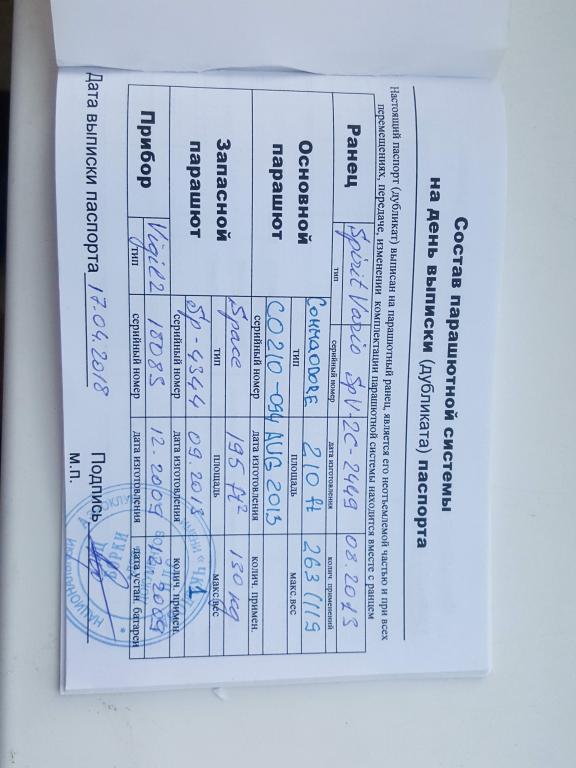 Состав парашютной системы
на день выписки (дубликата) паспорта
Настоящий паспорт (дубликат) выписан на парашютный ранец, является его неотъемлемой частью и при всех
перемещениях, передаче, изменении комплектации парашютной системы находится вместе с ранцем
Ранец Spirit Vario SpV-2C-2449 08.2013
тип серийный номер дата изготовления колич. применений
Основной парашют COMMODORE 210 ft 263 (119
тип площадь макс.вес
CO210-094 AUG 2013
серийный номер дата изготовления колич. примен.
Запасной парашют Space 195 ft² 130 кg
тип площадь макс.вес
Sp-4344 09.2013 1
серийный номер дата изготовления колич. примен.
Прибор Vigil 2 18085 12-2009 12.2009
тип серийный номер дата изготовления дата устан. батареи
Дата выписки паспорта 17.04.2018 Подпись
М.П.